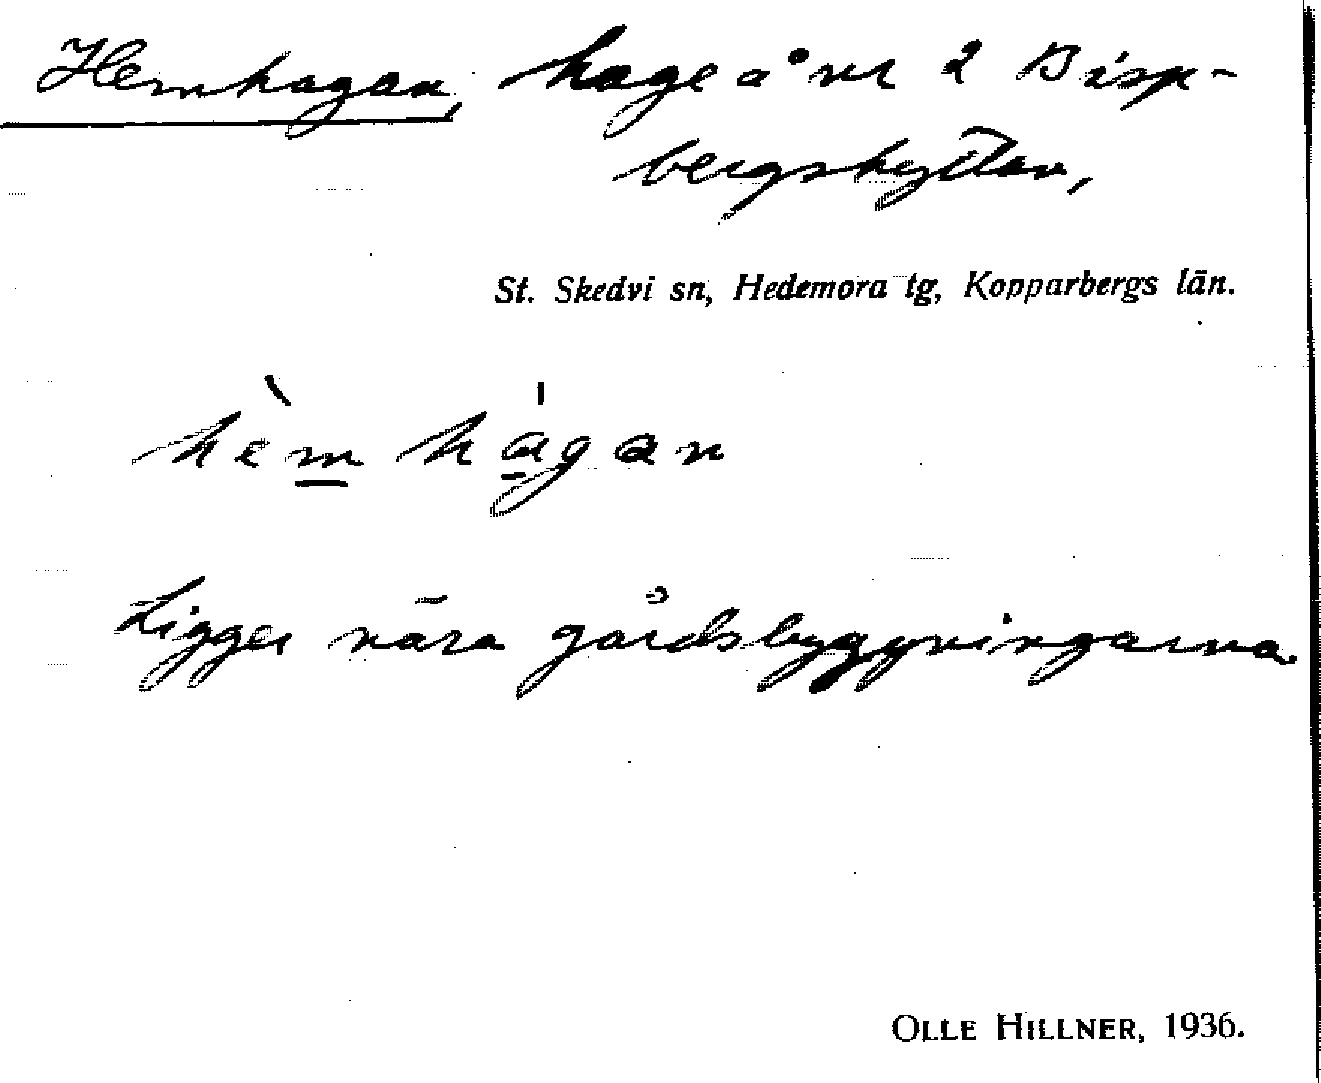 Hemhagan, hage å nr 2 Bisp-
bergshyttan,
St. Skedvi sn, Hedemora tg, Kopparbergs län.
hèm hágan
Ligger nära gårdsbyggningarna
OLLE HILLNER, 1936.